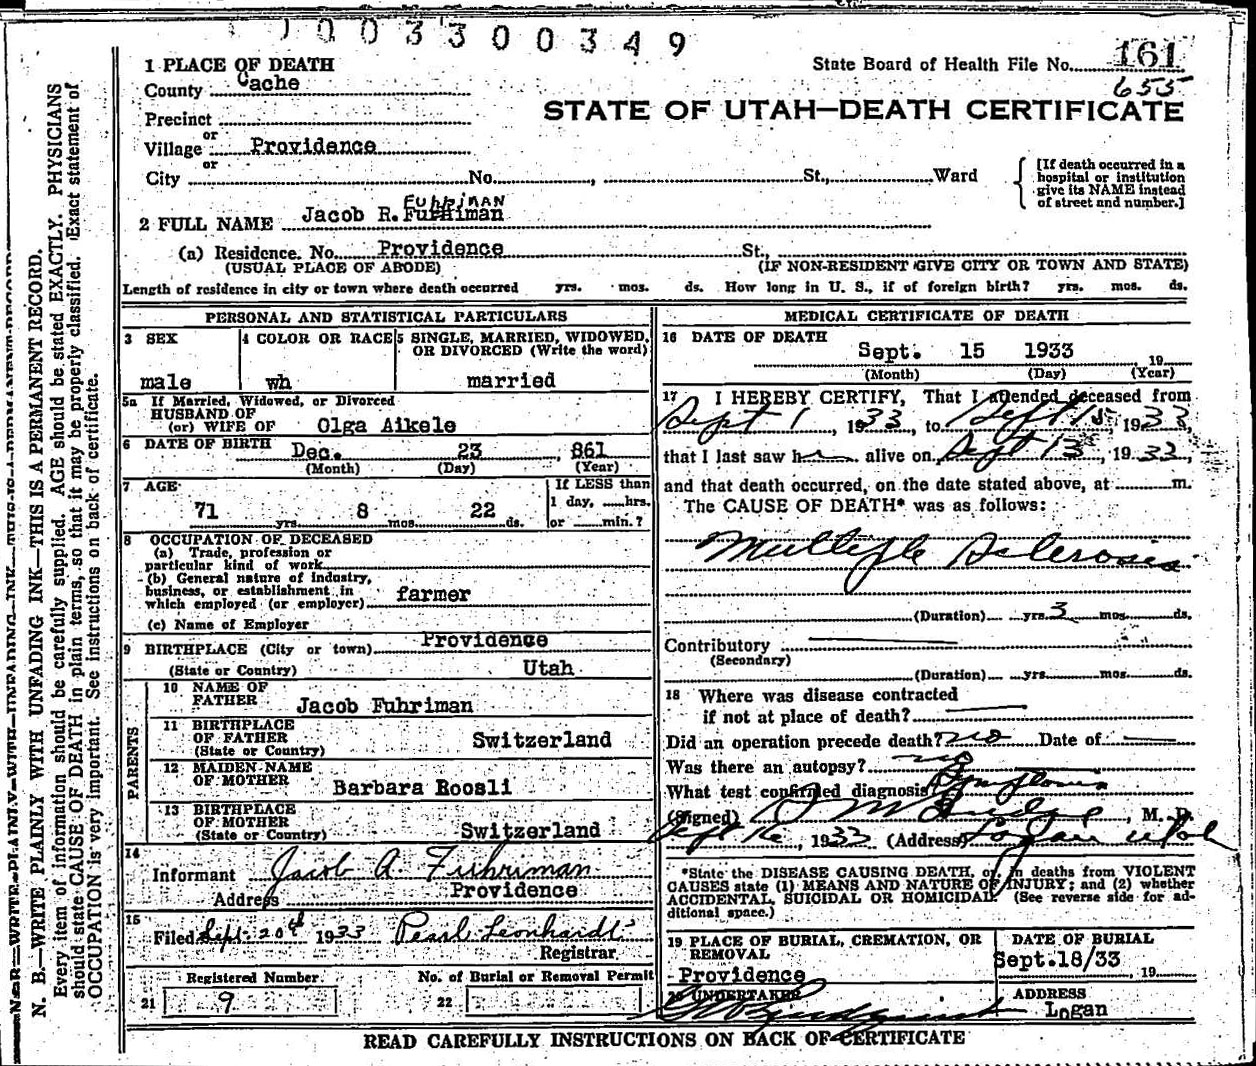 003300349
1 PLACE OF DEATH
State Board of Health File No. 161
655
County Cache
STATE OF UTAH—DEATH CERTIFICATE
Precinct
or
Village Providence
or
City No. , St., Ward
[If death occurred in a
hospital or institution
give its NAME instead
of street and number.]
FUHRIMAN
2 FULL NAME Jacob R. Fuhriman
(a) Residence. No. Providence St.,
(USUAL PLACE OF ABODE) (IF NON-RESIDENT GIVE CITY OR TOWN AND STATE)
Length of residence in city or town where death occurred yrs. mos. ds. How long in U. S., if of foreign birth? yrs. mos. ds.
PERSONAL AND STATISTICAL PARTICULARS
3 SEX
male
4 COLOR OR RACE
wh
5 SINGLE, MARRIED, WIDOWED,
OR DIVORCED (Write the word)
married
5a If Married, Widowed, or Divorced
HUSBAND OF
(or) WIFE OF Olga Aikele
6 DATE OF BIRTH Dec. 23, 861
(Month) (Day) (Year)
7 AGE
71 yrs. 8 mos. 22 ds.
If LESS than
1 day, hrs.
or min.?
8 OCCUPATION OF DECEASED
(a) Trade, profession or
particular kind of work
(b) General nature of industry,
business, or establishment in
which employed (or employer) farmer
(c) Name of Employer
9 BIRTHPLACE (City or town) Providence
(State or Country) Utah
PARENTS
10 NAME OF
FATHER Jacob Fuhriman
11 BIRTHPLACE
OF FATHER
(State or Country) Switzerland
12 MAIDEN NAME
OF MOTHER Barbara Roosli
13 BIRTHPLACE
OF MOTHER
(State or Country) Switzerland
14
Informant Jacob A. Fuhriman
Address Providence
15
Filed Sept. 20th 1933 Pearl Leonhardt
Registrar
Registered Number
21 9
No. of Burial or Removal Permit
22
MEDICAL CERTIFICATE OF DEATH
16 DATE OF DEATH
Sept. 15 1933, 19
(Month) (Day) (Year)
17 I HEREBY CERTIFY, That I attended deceased from
Sept 1, 1933, to Sept 15, 1933,
that I last saw h alive on Sept 13, 1933,
and that death occurred, on the date stated above, at m.
The CAUSE OF DEATH* was as follows:
Multiple Sclerosis
(Duration) yrs. 3 mos. ds.
Contributory
(Secondary)
(Duration) yrs. mos. ds.
18 Where was disease contracted
if not at place of death?
Did an operation precede death? no Date of
Was there an autopsy? no
What test confirmed diagnosis Symptoms
(Signed) , M. D.
Sept 16, 1933 (Address) Logan Utah
*State the DISEASE CAUSING DEATH, or, in deaths from VIOLENT
CAUSES state (1) MEANS AND NATURE OF INJURY; and (2) whether
ACCIDENTAL, SUICIDAL OR HOMICIDAL. (See reverse side for ad-
ditional space.)
19 PLACE OF BURIAL, CREMATION, OR
REMOVAL
Providence
DATE OF BURIAL
Sept.18/33, 19
20 UNDERTAKER
ADDRESS
Logan
READ CAREFULLY INSTRUCTIONS ON BACK OF CERTIFICATE
N. B.—WRITE PLAINLY WITH UNFADING INK—THIS IS A PERMANENT RECORD.
Every item of information should be carefully supplied. AGE should be stated EXACTLY. PHYSICIANS
should state CAUSE OF DEATH in plain terms, so that it may be properly classified. Exact statement of
OCCUPATION is very important. See instructions on back of certificate.